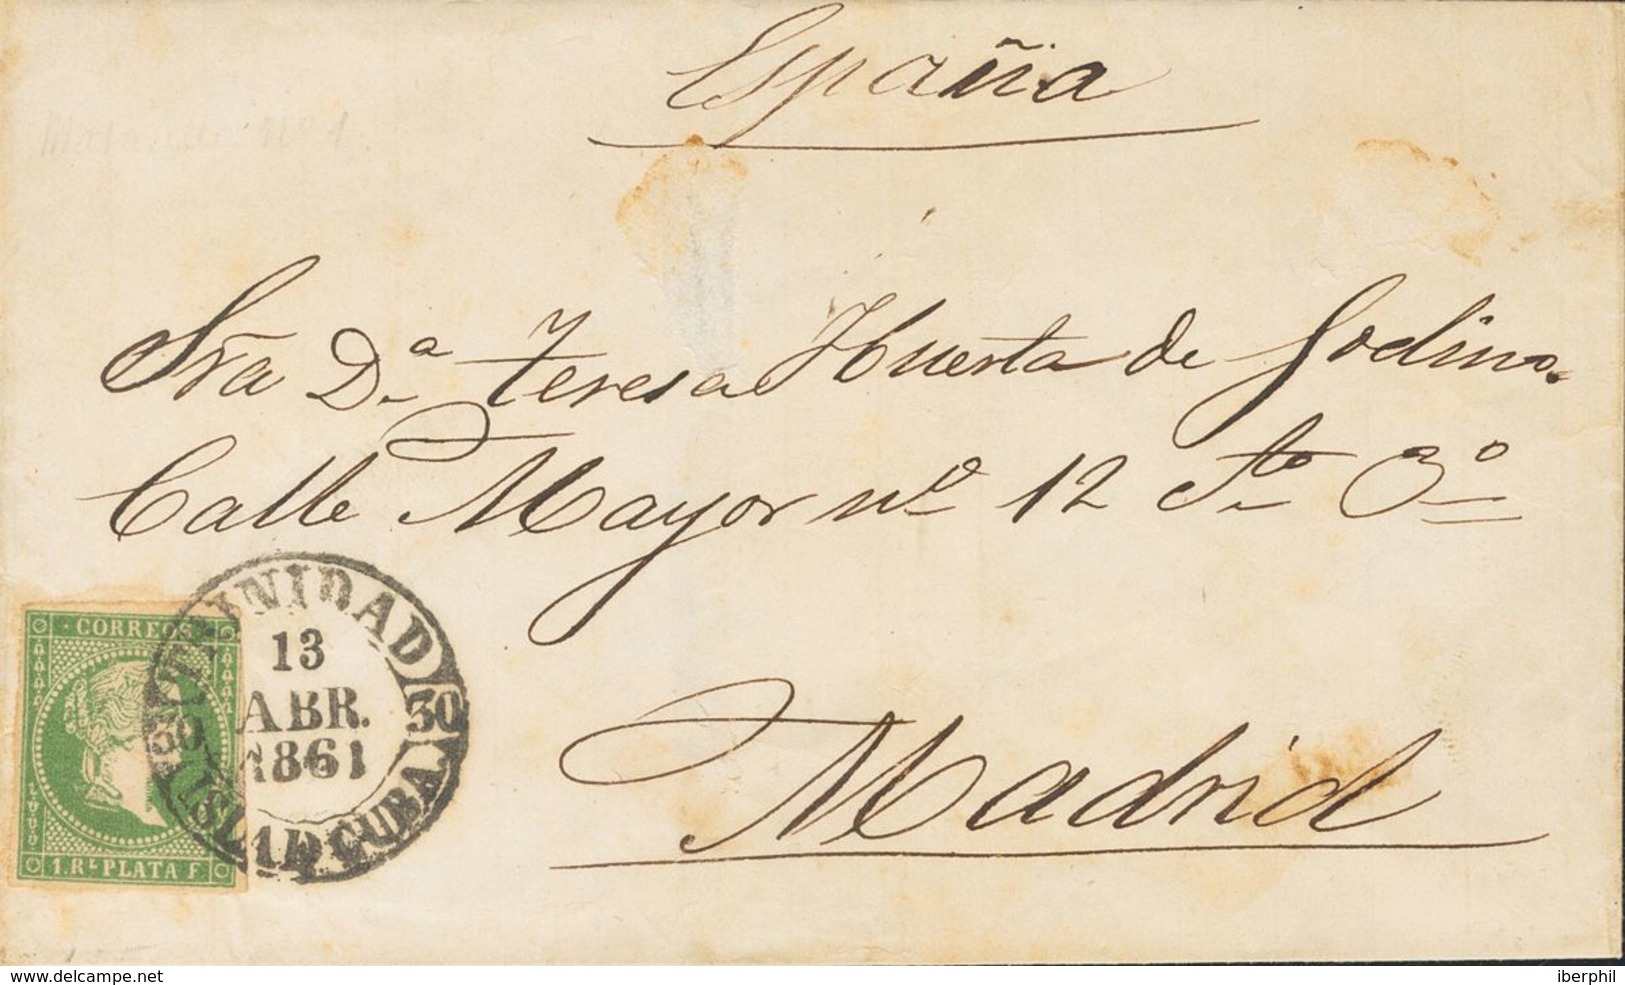 España
Nº 1
Sra Dª Teresa Huerta de Godino.
Calle Mayor nº 12 Sto 3º
Madrid
CORREOS
1. Rl PLATA F.
TRINIDAD
13
ABR.
1861
30 30
ISLA DE CUBA.
www.delcampe.net
iberphil